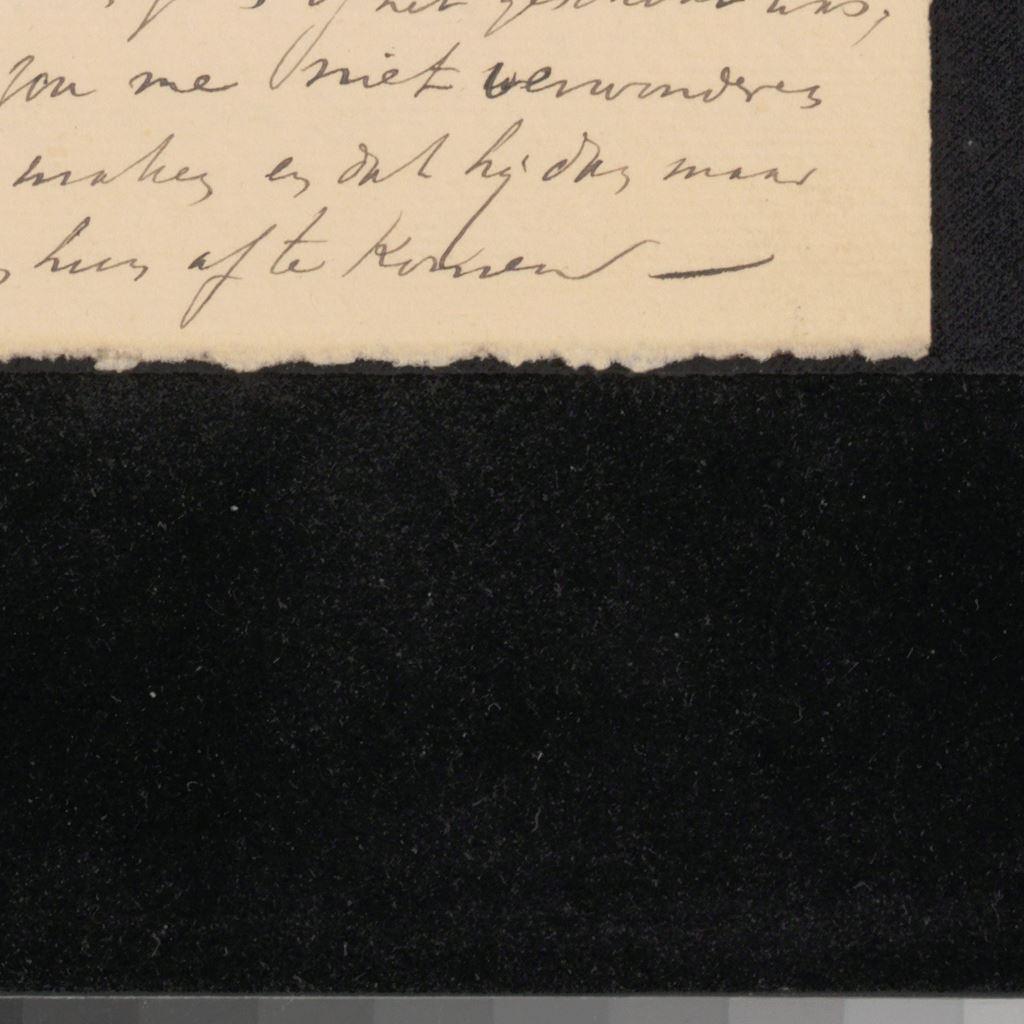 of het geschikt was,
zou me niet verwonderen
maken en dat hij dan maar
hun af te komen —